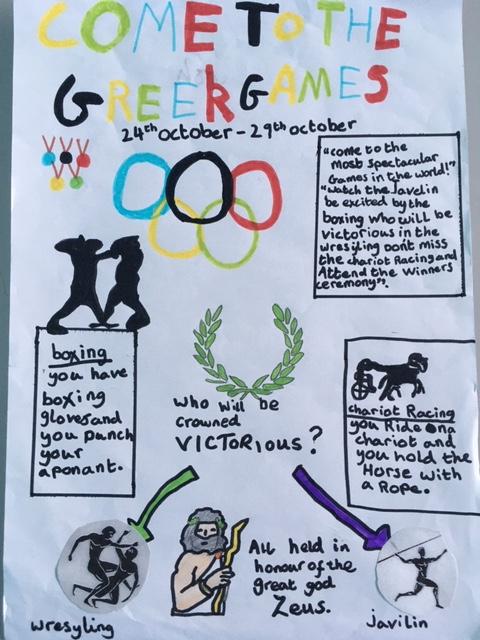 COME TO THE
GREEK GAMES
24th october - 29th october
"come to the
most spectacular
Games in the world!"
"watch the Javelin
be excited by the
boxing who will be
victorious in the
wresyling Don't miss
the chariot Racing and
Attend the winners
ceremony".
boxing
you have
boxing
gloves and
you punch
your
aponant.
who will be
crowned
VICTORIOUS?
chariot Racing
you Ride on a
chariot and
you hold the
Horse with
a Rope.
All held in
honour of the
great god
Zeus.
wresyling
javilin